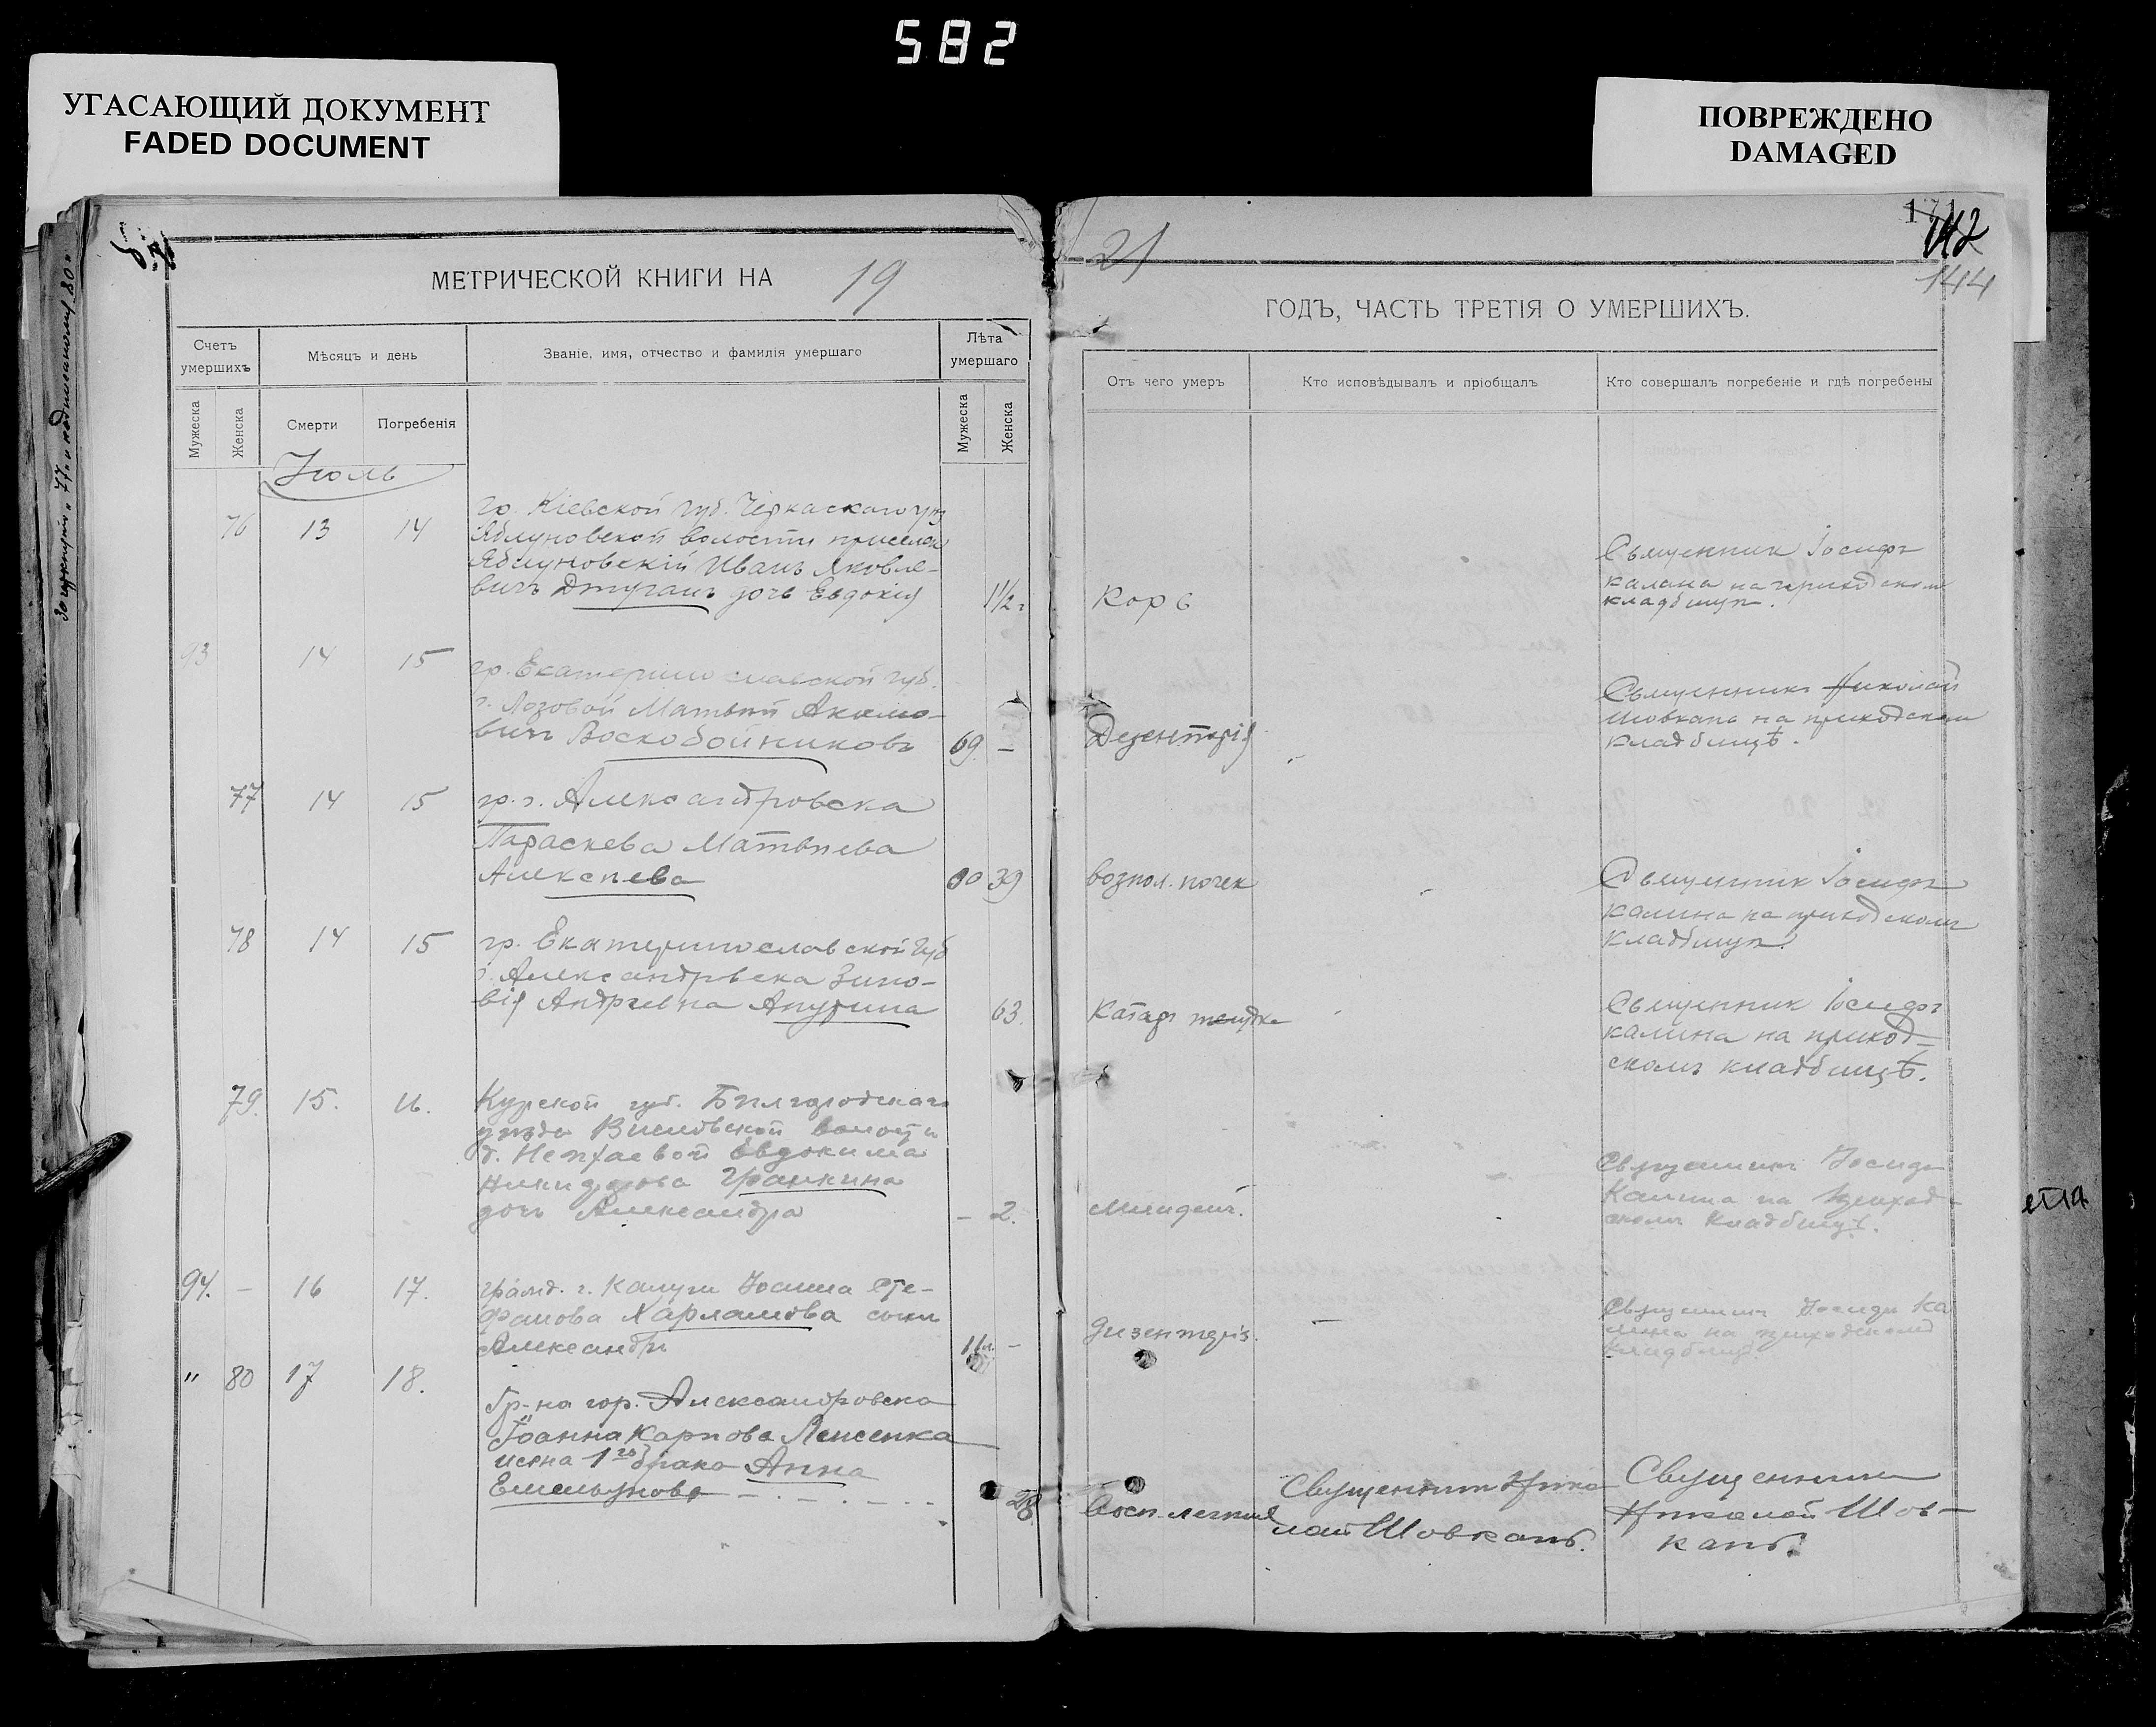 582
УГАСАЮЩИЙ ДОКУМЕНТ
FADED DOCUMENT
ПОВРЕЖДЕНО
DAMAGED
МЕТРИЧЕСКОЙ КНИГИ НА 19
21
112
144
ГОДЪ, ЧАСТЬ ТРЕТІЯ О УМЕРШИХЪ.
Счетъ умершихъ
Мѣсяцъ и день
Званіе, имя, отчество и фамилія умершаго
Лѣта умершаго
Отъ чего умеръ
Кто исповѣдывалъ и пріобщалъ
Кто совершалъ погребеніе и гдѣ погребены
Мужеска
Женска
Смерти
Погребенія
Мужеска
Женска
Июль
76 13 14
гр. Кіевской губ. Черкаскаго уез
Яблуновской волости
Яблуновскій Иванъ Яковле-
вичъ дочь Евдокія
1 1/2 г
Корь
Священник Іосифъ
калина на приходском
кладбищѣ.
93 14 15
гр. Екатеринославской губ.
г. Лозовой Матвѣй Акимо-
вичъ Воскобойниковъ
69 –
Дезентерія
Священникъ Николай
Шовкапъ на приходском
кладбищѣ.
77 14 15
гр. г. Александровска
Параскева Матвѣева
Алексѣева
00 39
воспол. почек
Священник Іосифъ
калина на приходскомъ
кладбищѣ.
78 14 15
гр. Екатеринославской губ
г. Александрвска Зино-
вія Андреевна Апурина
63.
Катар желудка
Священник Іосифъ
калина на приход-
скомъ кладбищѣ.
79. 15. 16.
Курской губ. Бѣлгородскаго
уѣзда Висловской волости
д. Нехаевой Евдокима
Никифорова Гранкина
дочь Александра
– 2.
Младенч.
Священникъ Іосифъ
Калина на приход-
скомъ кладбищѣ.
94. – 16 17.
гражд. г. Калуги Іоанна Сте-
фанова Харламова сынъ
Александръ
11 м. –
дизентерія.
–
Священникъ Іосифъ Ка
лина на приходскомъ
кладбищѣ.
" 80 17 18.
Гр-на гор. Александровска
Іоанна Карпова
жена 1го брака Анна
Емельянова
28
Восп. легкихъ
Священникъ Нико
лай Шовкапъ.
Священникъ
Николай Шов-
капъ.